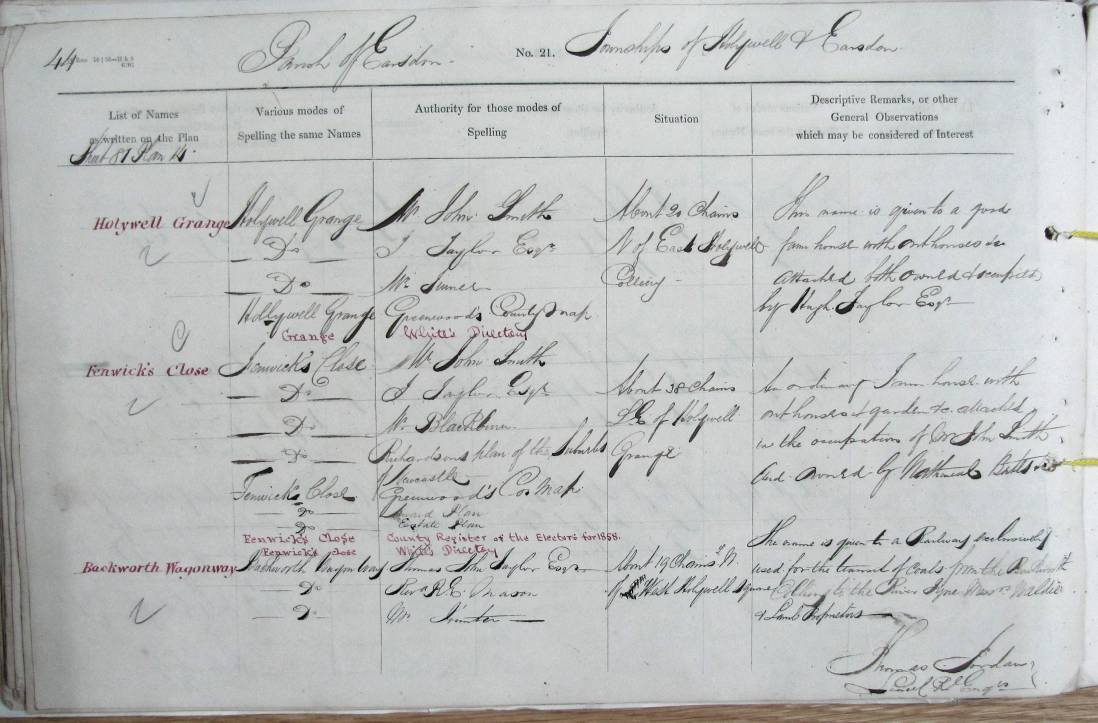 44
Parish Of Earsdon.
No. 21.
Townships of Holywell & Earsdon
List of Names
as written on the Plan
Various modes of
Spelling the same Names
Authority for those modes of
Spelling
Situation
Descriptive Remarks, or other
General Observations
which may be considered of Interest
Sheet 81 Plan
Holywell Grange
Holywell Grange
Mr John Smith
About 20 Chains
This name is given to a good
Do
J Taylor Esqr
N of East Holywell
farm house with outhouses &c
Do
Mr
Colliery
attached both owned & occupied
by Hugh Taylor Esqr
Hollywell Grange
Greenwood's County map
Grange
White's Directory
Fenwick's Close
Fenwick's Close
Mr John Smith
Do
J Taylor Esqr
About 38 Chains
An ordinary Farm house with
Do
Mr Blackburn
S.E. of Holywell
outhouses & garden &c. attached
Do
Richardsons plan of the Suburbs
Grange
in the occupation of Mr John Smith
of Newcastle
and owned by
Fenwick's Close
Greenwood's Co. Map
Do
Plan
Do
Estate Plan
Fenwick's Close
County Register of the Electors for 1858.
Fenwick's Close
White's Directory
Backworth Wagonway
Backworth Wagonway
Thomas John Taylor Esqr
About 19 Chains N.
The name is given to a Railway exclusively
used for the transit of Coals from the Backworth
Do
Revd R.E. Mason
of West Holywell Square
Colliery to the River Tyne Messrs Maldie
Do
Mr
& Lamb Proprietors
Thomas Jordan